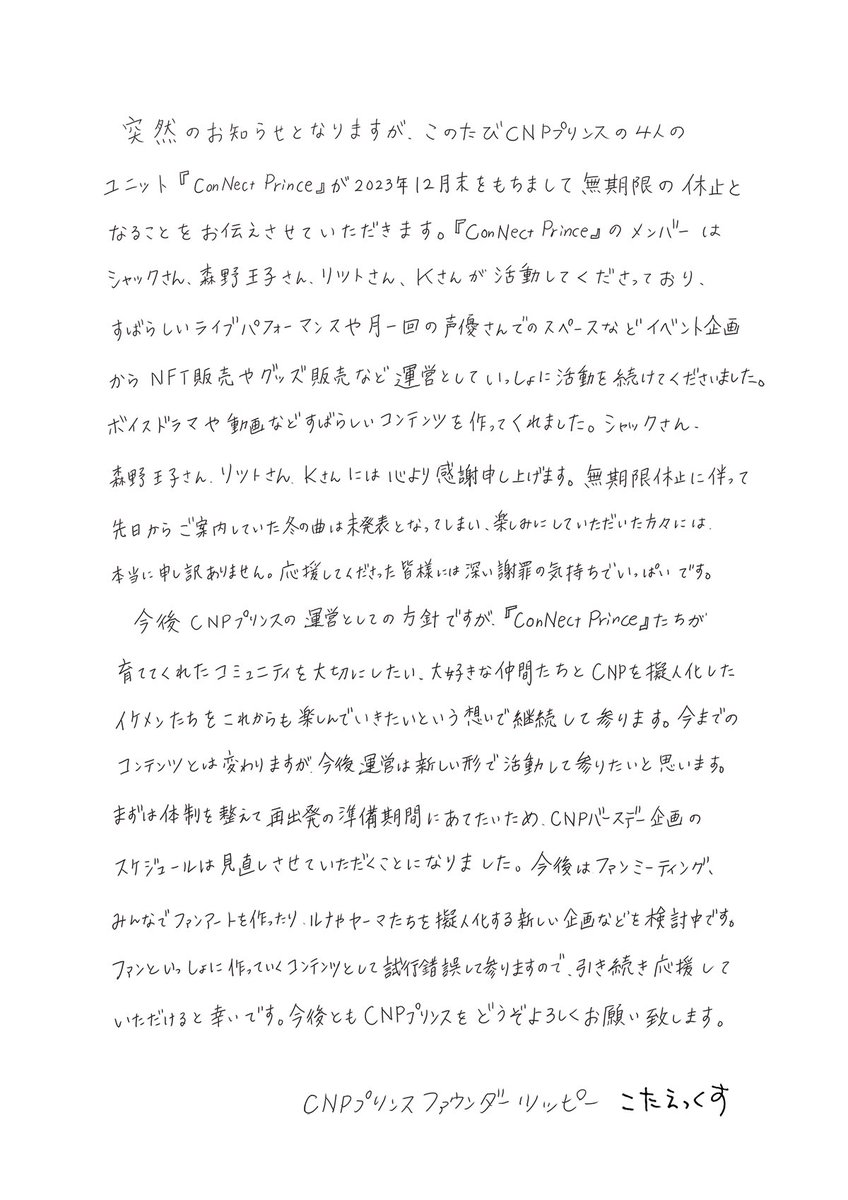 突然のお知らせとなりますが、このたびCNPプリンスの4人の
ユニット『ConNect Prince』が2023年12月末をもちまして無期限の休止と
なることをお伝えさせていただきます。『ConNect Prince』のメンバーは
シャックさん、森野王子さん、リツトさん、Kさんが活動してくださっており、
すばらしいライブパフォーマンスや月一回の声優さんでのスペースなどイベント企画
からNFT販売やグッズ販売など運営としていっしょに活動を続けてくださいました。
ボイスドラマや動画などすばらしいコンテンツを作ってくれました。シャックさん、
森野王子さん、リツトさん、Kさんには心より感謝申し上げます。無期限休止に伴って
先日からご案内していた冬の曲は未発表となってしまい、楽しみにしていただいた方々には、
本当に申し訳ありません。応援してくださった皆様には深い謝罪の気持ちでいっぱいです。
今後CNPプリンスの運営としての方針ですが、『ConNect Prince』たちが
育ててくれたコミュニティを大切にしたい、大好きな仲間たちとCNPを擬人化した
イケメンたちをこれからも楽しんでいきたいという想いで継続して参ります。今までの
コンテンツとは変わりますが、今後運営は新しい形で活動して参りたいと思います。
まずは体制を整えて再出発の準備期間にあてたいため、CNPバースデー企画の
スケジュールは見直しさせていただくことになりました。今後はファンミーティング、
みんなでファンアートを作ったり、ルナやヤーマたちを擬人化する新しい企画などを検討中です。
ファンといっしょに作っていくコンテンツとして試行錯誤して参りますので、引き続き応援して
いただけると幸いです。今後ともCNPプリンスをどうぞよろしくお願い致します。
CNPプリンスファウンダー ツッピー こたえっくす